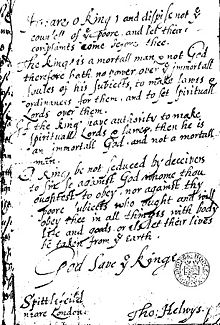 Heare o King, and dispise not yᵉ
counsell of yᵉ poore, and let their
complaints come before thee.
The King is a mortall man, & not God
therefore hath no power over yᵉ immortall
soules of his subiects, to make lawes &
ordinances for them, and to set spirituall
Lords over them.
If the King have authority to make
spirituall Lords & lawes, then he is
an immortall God, and not a mortall
man.
O King, be not seduced by deceivers
to sin so against God whome thou
oughtest to obey, nor against thy
poore subiects who ought and will
obey thee in all things with body
life and goods or els let their lives
be taken from yᵉ earth.
God Save yᵉ King
Spittlefeild
neare London.
Tho: Helwys.